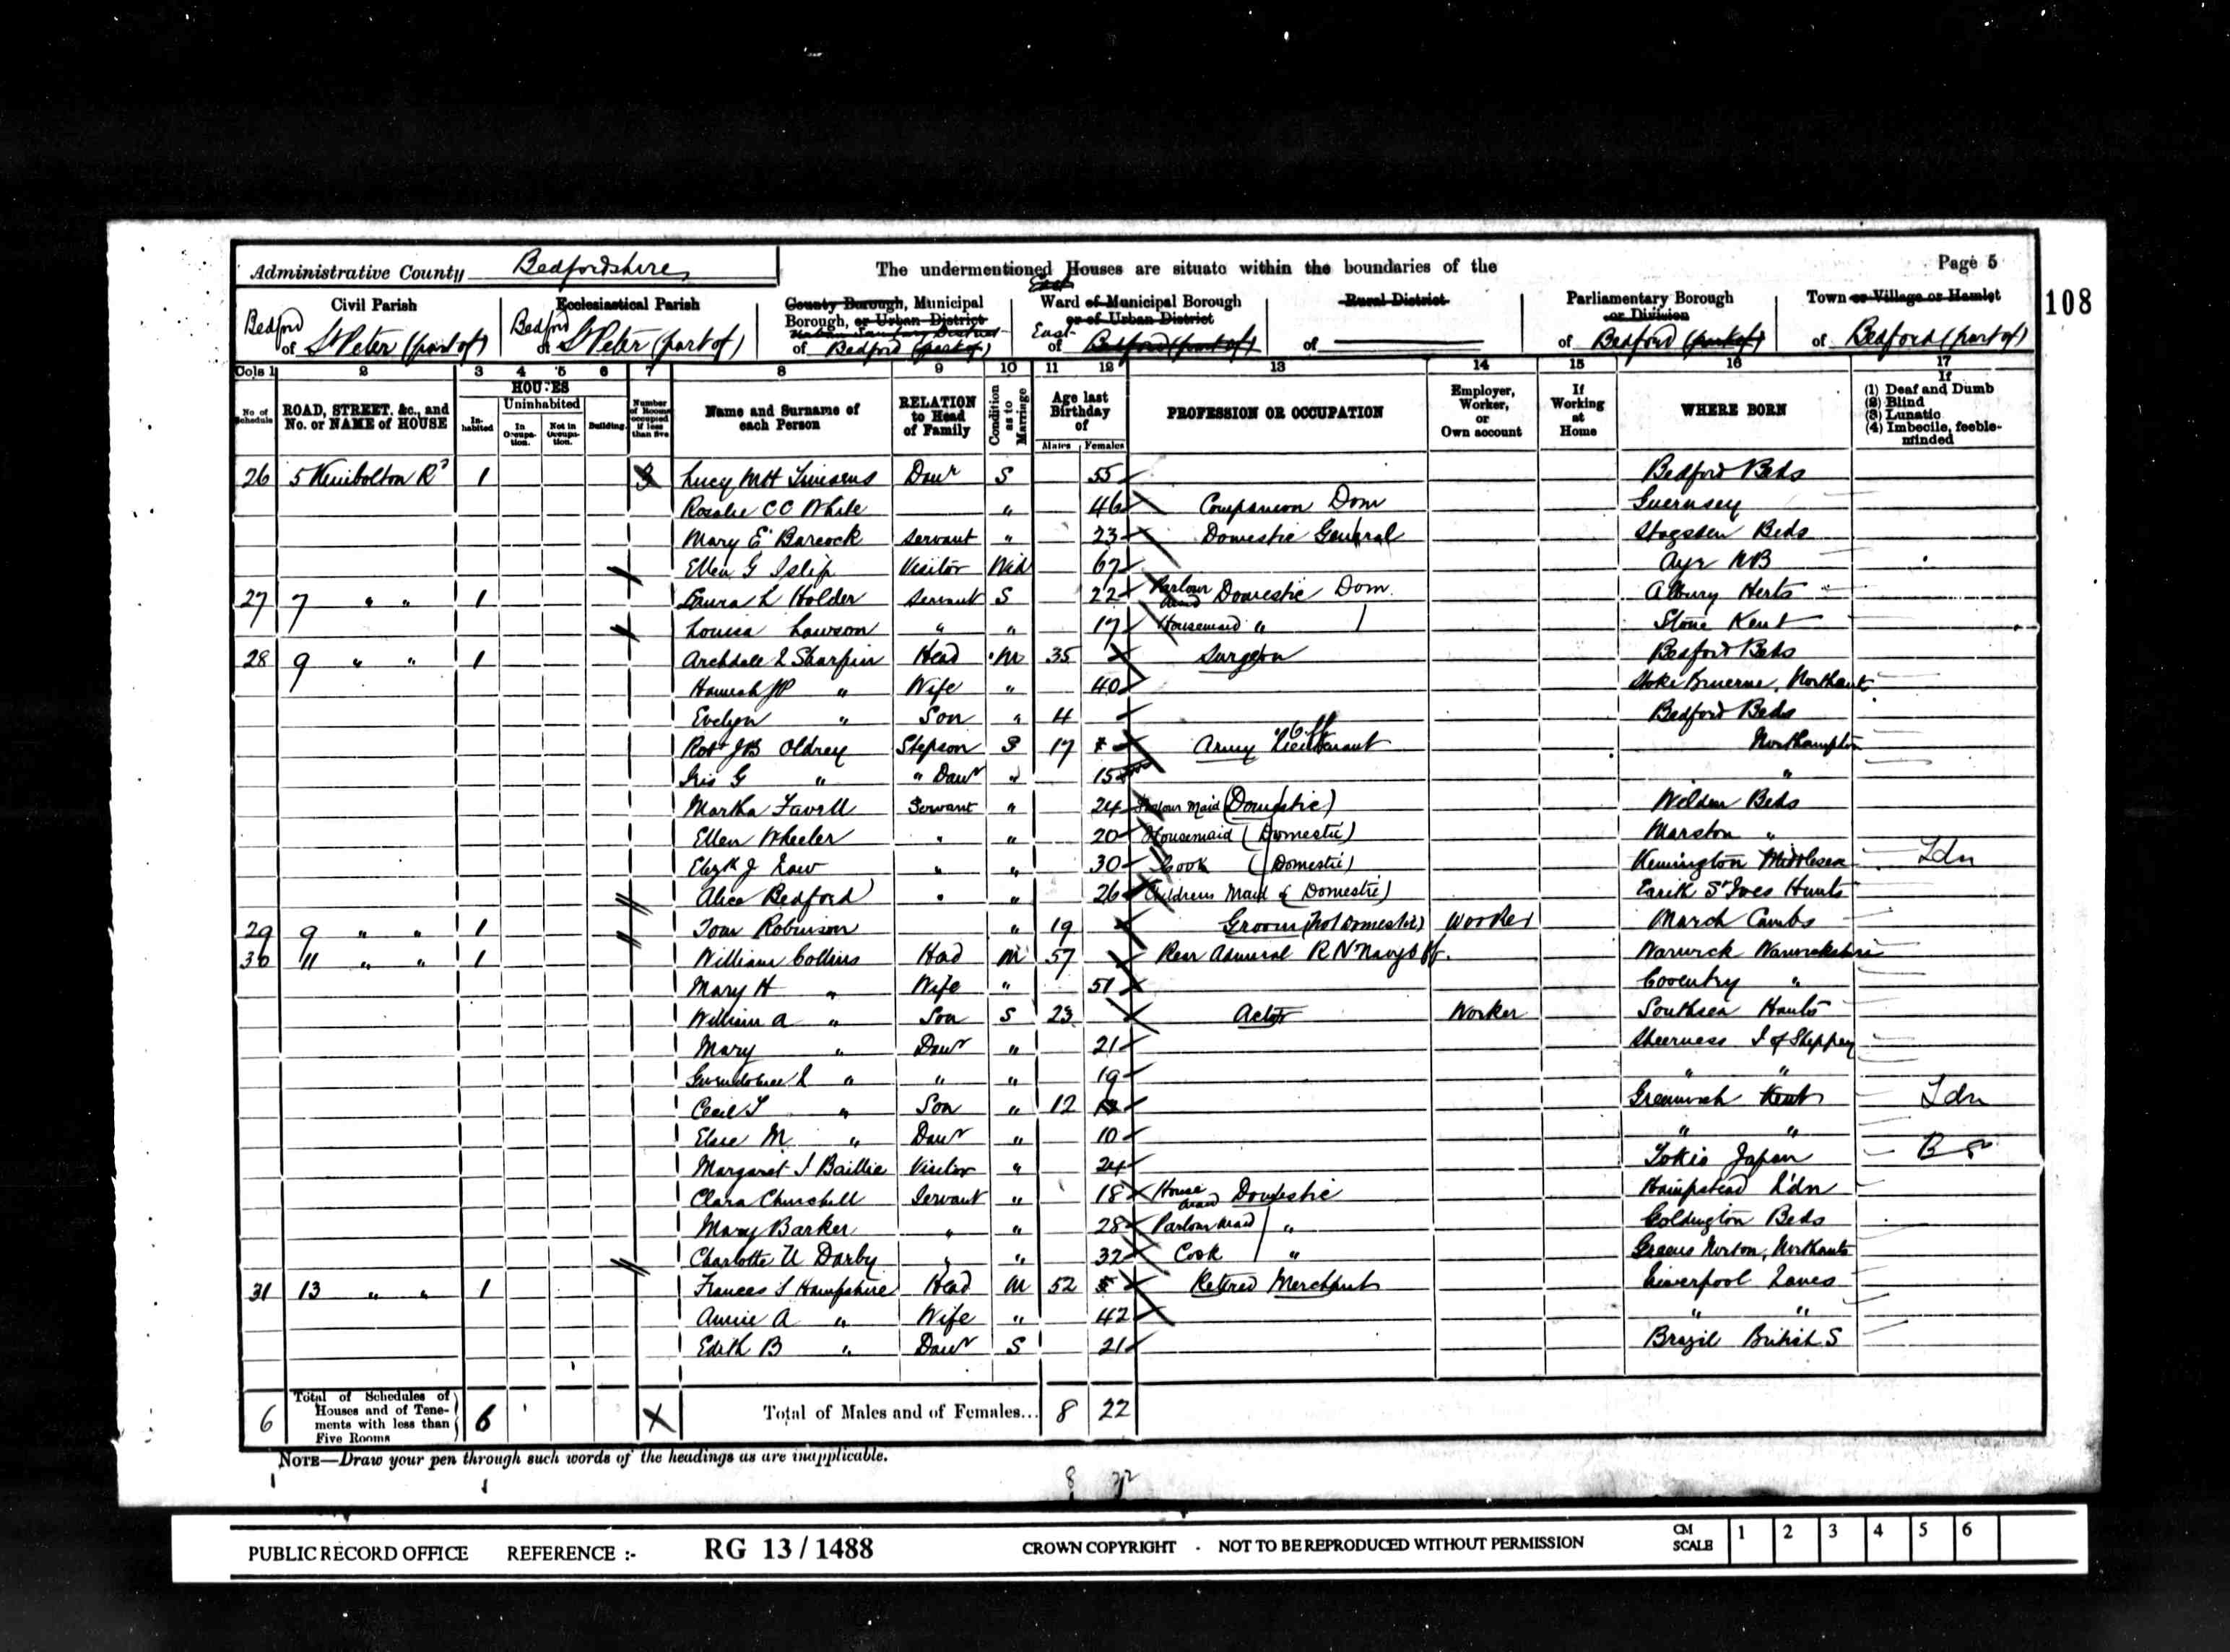 Administrative County Bedfordshire
The undermentioned Houses are situate within the boundaries of the
Page 5
108
Civil Parish
Bedford
of St Peter (part of)
Ecclesiastical Parish
Bedford
of St Peter (part of)
County Borough, Municipal
Borough, or Urban District
of Bedford (part of)
East
Ward of Municipal Borough
or of Urban District
East
of Bedford (part of)
Rural District
of
Parliamentary Borough
or Division
of Bedford (part of)
Town or Village or Hamlet
of Bedford (part of)
Cols 1 2 3 4 5 6 7 8 9 10 11 12 13 14 15 16 17
No. of Schedule
ROAD, STREET, &c., and No. or NAME of HOUSE
HOUSES
Inhabited
Uninhabited
In Occupation.
Not in Occupation.
Building.
Number of Rooms occupied if less than five
Name and Surname of each Person
RELATION to Head of Family
Condition as to Marriage
Age last Birthday of
Males Females
PROFESSION OR OCCUPATION
Employer, Worker, or Own account
If Working at Home
WHERE BORN
If
(1) Deaf and Dumb
(2) Blind
(3) Lunatic
(4) Imbecile, feeble-minded
26 5 Kimbolton Rd 1 Lucy MH Daur S 55 Bedford Beds
Rosalie CC White " 46 Companion Dom Guernsey
Mary E Barcock Servant " 23 Domestic General Stagsden Beds
Ellen G Islip Visitor Wid 67 Ayr NB
27 7 " " 1 Laura L Holder Servant S 22 Parlour Maid Domestic Dom Albury Herts
Louisa Lawson " " 17 Housemaid " Stone Kent
28 9 " " 1 Archdale L Sharpin Head M 35 Surgeon Bedford Beds
Hannah " Wife " 40 Stoke Bruerne, Northants
Evelyn " Son " 4 Bedford Beds
Robt JB Oldrey Stepson S 17 Army Lieutenant Northampton
Iris G " " Daur " 15 "
Martha Favell Servant " 24 Parlour Maid (Domestic) Beds
Ellen Wheeler " " 20 Housemaid (Domestic) Marston "
Elizth J Law " " 30 Cook (Domestic) Kensington Middlesex Ldn
Alice Bedford " " 26 Childrens Maid (Domestic) Earith St Ives Hunts
29 9 " " 1 Tom Robinson " 19 Groom (Not Domestic) Worker March Cambs
30 11 " " 1 William Collins Head M 57 Rear Admiral RN Navy Off. Warwick Warwickshire
Mary H " Wife " 51 Coventry "
William A " Son S 23 Actor Worker Southsea Hants
Mary " Daur " 21 Sheerness I of Sheppey
Gwendoline L " " " 19 " "
Cecil T " Son " 12 Greenwich Kent Ldn
Elsie M " Daur " 10 " "
Margaret J Baillie Visitor " 24 Tokio Japan
Clara Churchill Servant " 18 House Maid Domestic Hampstead Ldn
Mary Barker " " 28 Parlour Maid " Goldington Beds
Charlotte U Darby " " 32 Cook " Greens Norton, Northants
31 13 " " 1 Frances S Hampshire Head M 52 Retired Merchant Liverpool Lancs
Annie A " Wife " 42 " "
Edith B " Daur S 21 Brazil British S
6 Total of Schedules of Houses and of Tenements with less than Five Rooms 6 Total of Males and of Females... 8 22
NOTE—Draw your pen through such words of the headings as are inapplicable.
8 22
PUBLIC RECORD OFFICE REFERENCE :- RG 13 / 1488 CROWN COPYRIGHT - NOT TO BE REPRODUCED WITHOUT PERMISSION CM SCALE 1 2 3 4 5 6